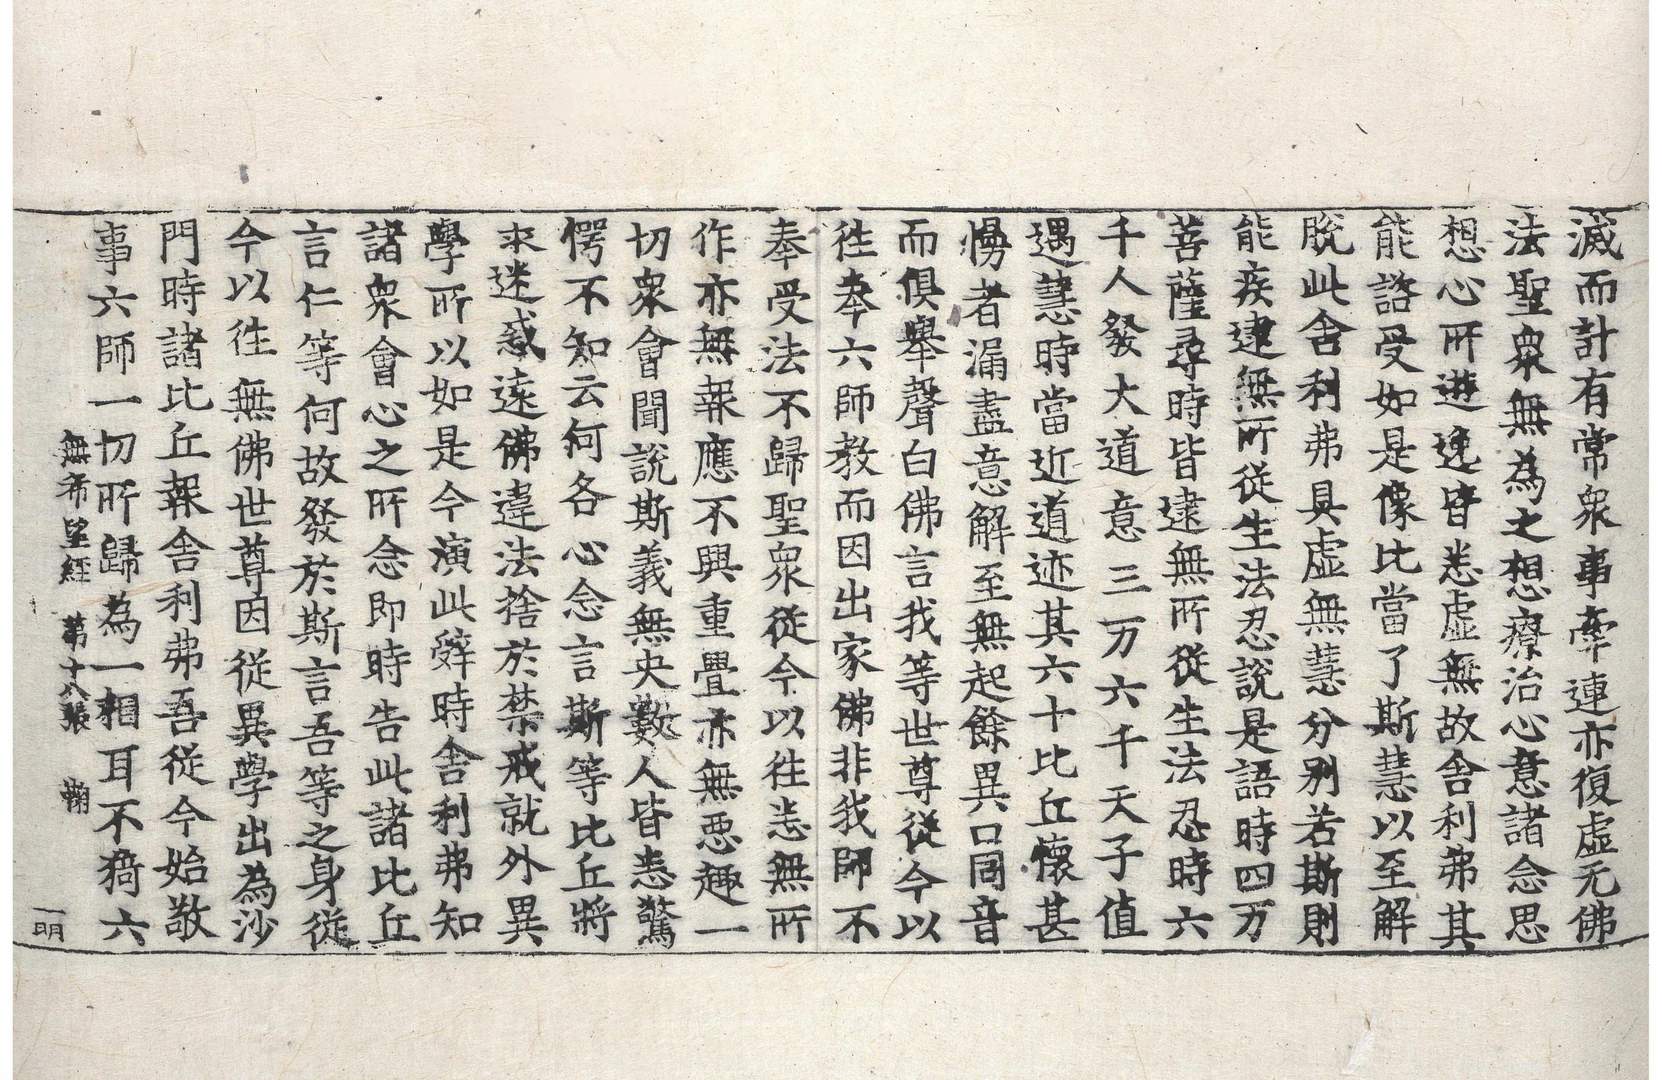 滅而計有常衆事牽連亦復虛无佛
法聖衆無為之想療治心意諸念思
想心所遊逸皆悉虛無故舍利弗其
能諮受如是像比當了斯慧以至解
脫此舍利弗具虛無慧分別若斯則
能疾逮無所從生法忍說是語時四万
菩薩尋時皆逮無所從生法忍時六
千人發大道意三万六千天子值
遇慧時當近道迹其六十比丘懷甚
慢者漏盡意解至無起餘異口同音
而俱舉聲白佛言我等世尊從今以
往奉六師教而因出家佛非我師不
奉受法不歸聖衆從今以往恙無所
作亦無報應不興重疊亦無惡趣一
切衆會聞說斯義無央數人皆恙驚
愕不知云何各心念言斯等比丘將
來迷惑遠佛違法捨於禁戒就外異
學所以如是今演此辭時舍利弗知
諸衆會心之所念即時告此諸比丘
言仁等何故發於斯言吾等之身從
今以往無佛世尊因從異學出為沙
門時諸比丘報舍利弗吾從今始敬
事六師一切所歸為一相耳不猗六
無希望經 第十八張 鞠
一明